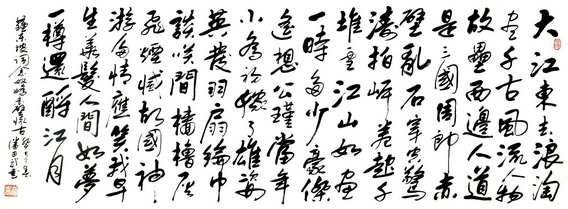 大江東去浪淘
盡千古風流人物
故壘西邊人道
是三國周郎赤
壁亂石穿空驚
濤拍岸卷起千
堆雪江山如畫
一時多少豪傑
遙想公瑾當年
小喬初嫁了雄姿
英發羽扇綸巾
談咲間檣櫓灰
飛煙滅故國神
游多情應笑我早
生華髮人間如夢
一樽還酹江月
蘇東坡詞念奴嬌赤壁懷古